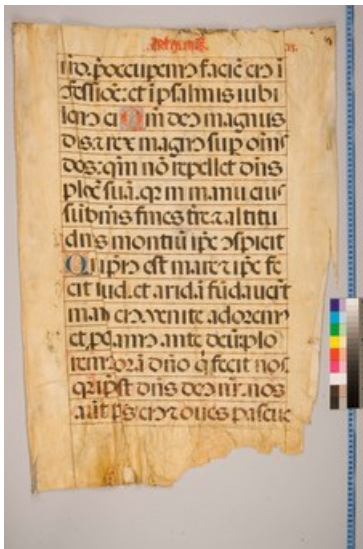 iṙo. p̄occupemꝰ faciē eiꝰ ī
ↄfessiōe: et ī psalmis iubi
lemꝰ ei Qm̄ deꝰ magnus
dn̄s ⁊ rex magnꝰ sup om̄s
dos: qm̄ nō repellet dn̄s
plebē suā. qr in manu eius
sūt om̄s fines tr̄e ⁊ altitu
dines montiū ip̄e ↄspicit
Qm̄ ip̄iꝰ est mare ⁊ ip̄e fe
cit illud. et aridā fūdauerūt
manꝰ eiꝰ venite adoremꝰ
et p̄cidamꝰ ante deū: plo
remꝰ corā dn̄o q̄ fecit nos
qr ip̄e est dn̄s deꝰ nr̄. nos
aūt ppl̄s eiꝰ ⁊ oues pascue